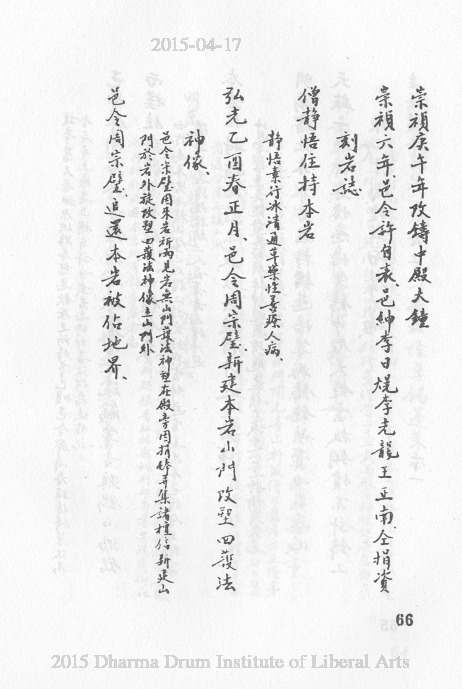 2015-04-17
崇禎庚午年改鑄中殿大鐘
崇禎六年、邑令許自表、邑紳李日煋李光龍王正南、仝捐資
刻岩誌
僧靜悟住持本岩
靜悟素行冰清通草藥性善療人病、
弘光乙酉春正月、邑令周宗璧、新建本岩山門改塑四護法
神像、
邑令宗璧因來岩祈雨見岩無山門護法神塑在殿旁因捐俸哥集諸檀信新建山
門於岩外旋改塑四護法神像立山門外
邑令周宗璧、追還本岩被佔地界、
66
2015 Dharma Drum Institute of Liberal Arts